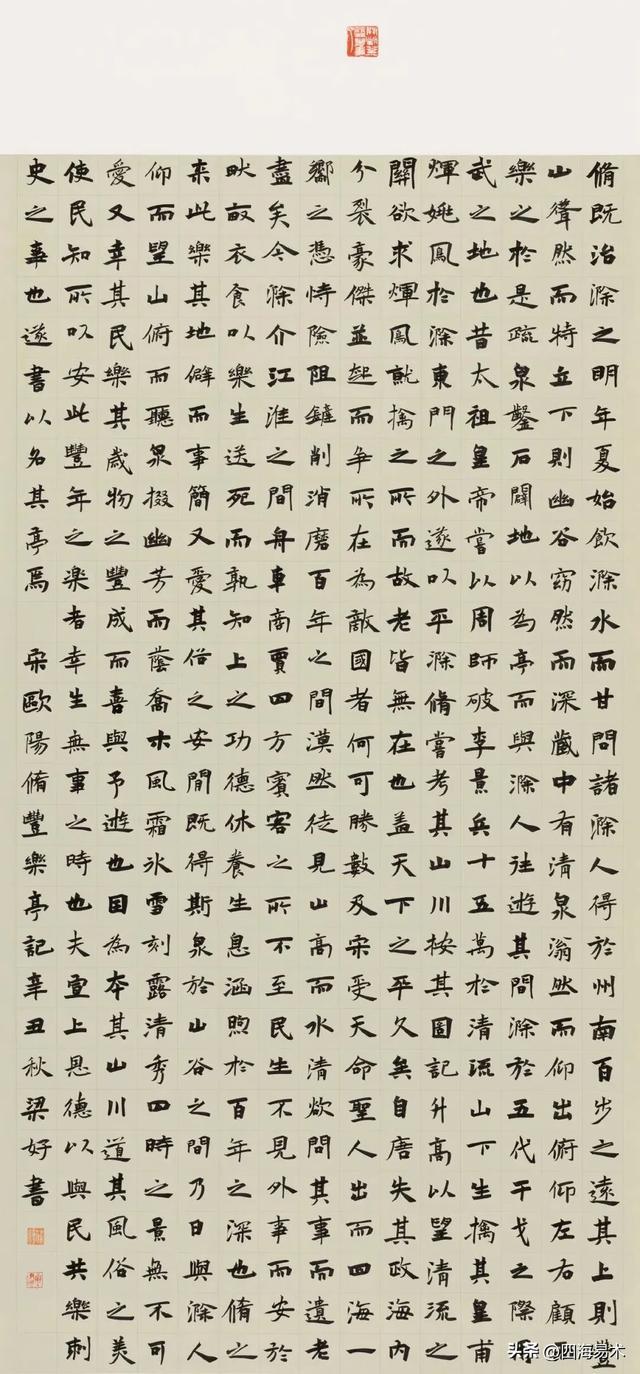 脩既治滁之明年夏始飲滁水而甘問諸滁人得於州南百步之遠其上則豐
山聳然而特立下則幽谷窈然而深藏中有清泉滃然而仰出俯仰左右顧而
樂之於是疏泉鑿石闢地以為亭而與滁人往遊其間滁於五代干戈之際用
武之地也昔太祖皇帝嘗以周師破李景兵十五萬於清流山下生擒其皇甫
煇姚鳳於滁東門之外遂以平滁脩嘗考其山川按其圖記升高以望清流之
關欲求煇鳳就擒之所而故老皆無在也蓋天下之平久矣自唐失其政海內
分裂豪傑並起而爭所在為敵國者何可勝數及宋受天命聖人出而四海一
嚮之憑恃險阻鏟削消磨百年之間漠然徒見山高而水清欲問其事而遺老
盡矣今滁介江淮之間舟車商賈四方賓客之所不至民生不見外事而安於
畎畝衣食以樂生送死而孰知上之功德休養生息涵煦於百年之深也脩之
来此樂其地僻而事簡又愛其俗之安閒既得斯泉於山谷之間乃日與滁人
仰而望山俯而聽泉掇幽芳而蔭喬木風霜冰雪刻露清秀四時之景無不可
愛又幸其民樂其歲物之豐成而喜與予遊也因為本其山川道其風俗之美
使民知所以安此豐年之樂者幸生無事之時也夫宣上恩德以與民共樂刺
史之事也遂書以名其亭焉 宋歐陽脩豐樂亭記辛丑秋梁好書
头条 @四海易木